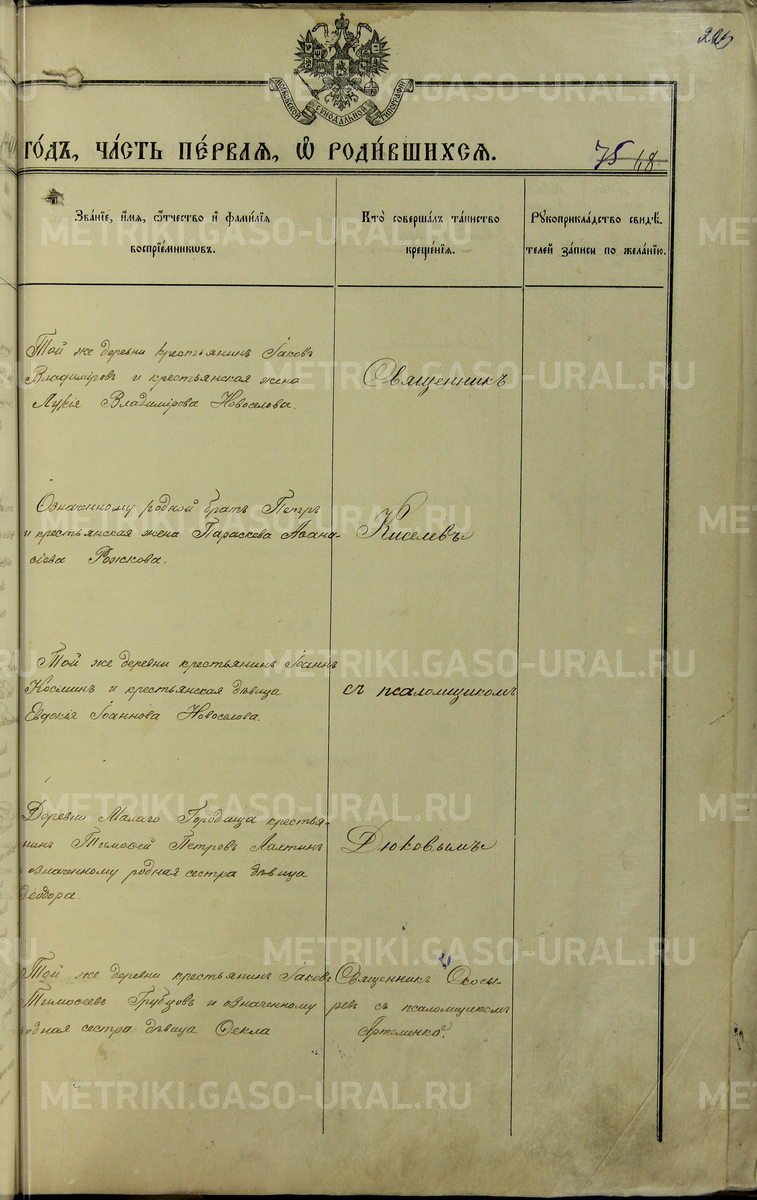 225
МОСКОВСКОЙ СѴНОДАЛЬНОЙ ТИПОГРАФІИ
го́дъ, ча́сть пе́рваѧ, ѡ҆ роди́вшихсѧ.
75 48.
Зва́нїе, и҆́мѧ, ѻ҆́тчество и҆ фами́лїѧ
воспрїе́мникѡвъ.
Кто̀ соверша́лъ та́инство
креще́нїѧ.
Рꙋкоприкла́дство свидѣ́-
телей за́писи по жела́нїю.
Той же деревни крестьянинъ Іаковъ
Владиміровъ и крестьянская жена
Лукія Владимірова Новоселова.
Священникъ
Означенному родной братъ Петръ
и крестьянская жена Параскева Аѳана-
сіева Рожкова.
Киселевъ
Той же деревни крестьянинъ Іоаннъ
Космин и крестьянская дѣвица
Евдокія Іоаннова Новоселова.
съ псаломщикомъ
Деревни Малаго Городища крестья-
нинъ Тимоѳей Петровъ
означенному родная сестра дѣвица
Ѳеодора.
Дюковымъ
Той же деревни крестьянинъ Іаковъ
Тимоѳеевъ и означенному
родная сестра дѣвица Ѳекла
Священникъ
ревъ съ псаломщикомъ
Артеменко.
METRIKI.GASO-URAL.RU